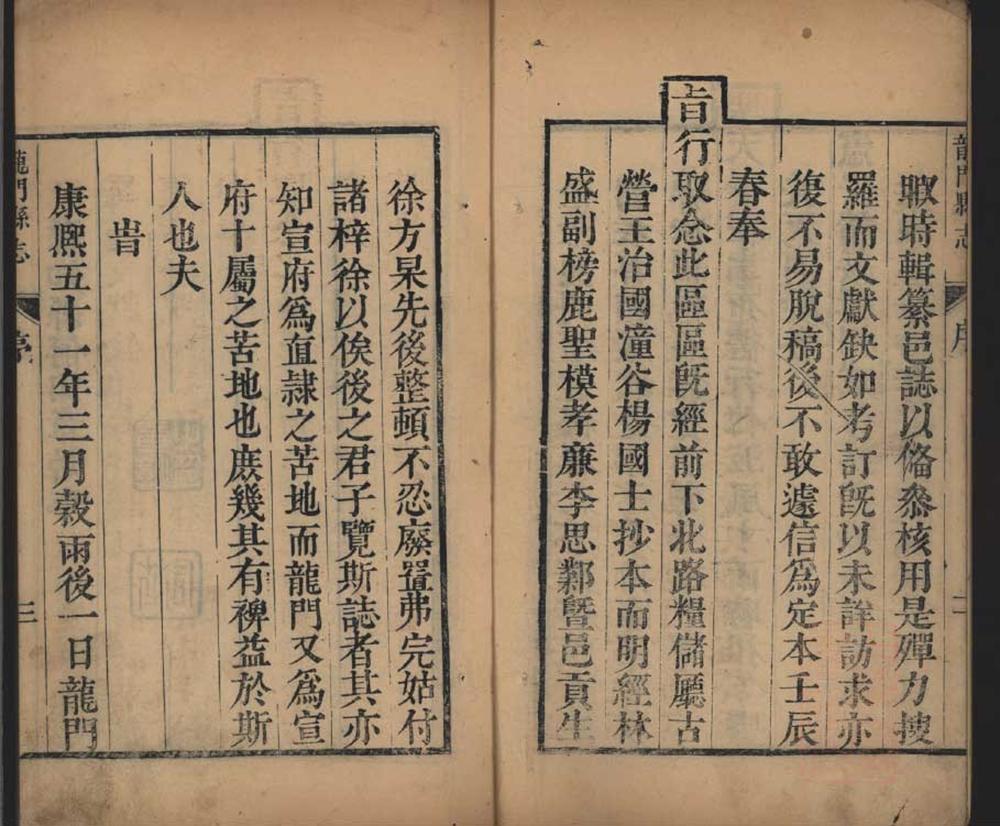 龍門縣志
序
二
暇時輯纂邑誌以俻叅核用是殫力搜
羅而文獻缺如考訂旣以未詳訪求亦
復不易脫稿後不敢遽信爲定本壬辰
春奉
旨行取念此區區旣經前下北路糧儲廳古
營王治國潼谷楊國士抄本而明經林
盛副榜鹿聖模孝廉李思鄴曁邑貢生
徐方杲先後整頓不忍廢置弗完姑付
諸梓徐以俟後之君子覽斯誌者其亦
知宣府爲直隷之苦地而龍門又爲宣
府十屬之苦地也庶幾其有裨益於斯
人也夫
旹
康熈五十一年三月榖雨後一日龍門
龍門縣志
序
三